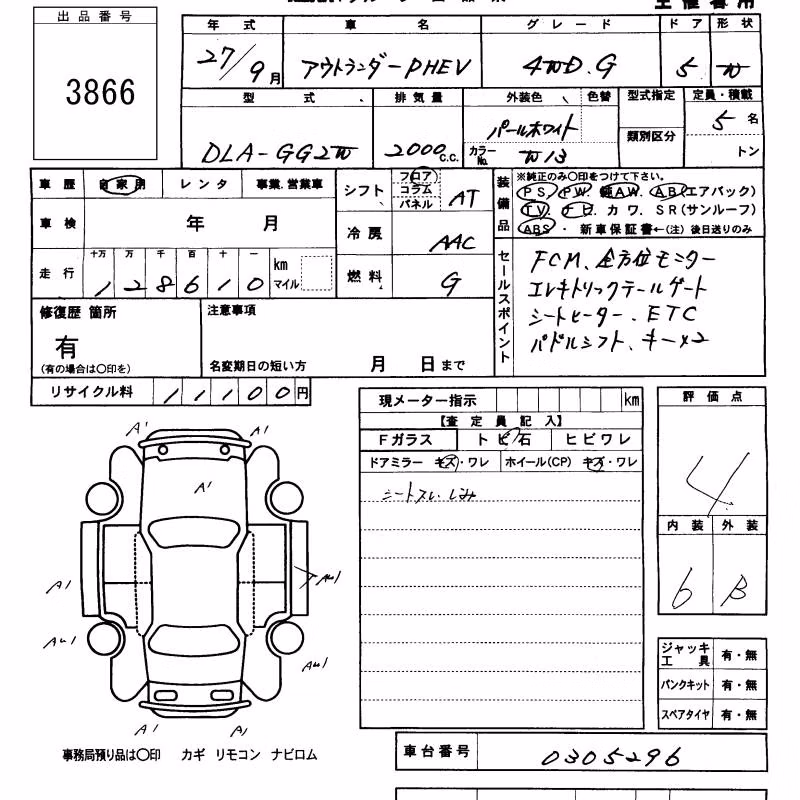 出品番号
3866
年 式 車 名 グ レ ー ド ド ア 形 状
27/9月 アウトランダーPHEV 4WD.G 5 W
型 式 排 気 量 外装色 色替 型式指定 定員・積載
DLA-GG2W 2000c.c. パールホワイト カラーNo. W13 類別区分 5名 トン
車 歴 自家用 レ ン タ 事業.営業車
車 検 年 月
走 行 十万 万 千 百 十 一 km マイル
128610
シフト フロア コラム パネル AT
冷 房 AAC
燃 料 G
装備品
※純正のみ〇印をつけて下さい。
PS. PW. 純AW. AB(エアバック)
TV. ナビ. カ ワ. SR(サンルーフ)
ABS ・ 新車保証書←(注) 後日送りのみ
セールスポイント
FCM、全方位モニター
エレキトリックテールゲート
シートヒーター、ETC
パドルシフト、キー×2
修復歴 箇所
有
(有の場合は〇印を)
注意事項
名変期日の短い方 月 日まで
リサイクル料 11100円
現メーター指示 km
【査 定 員 記 入】
Fガラス ト ビ 石 ヒビワレ
ドアミラー キズ・ワレ ホイール(CP) キズ・ワレ
シートスレ、しみ
評 価 点
4
内 装 外 装
6 B
A1 A1
A1
A1 AU1
AU1 AU1
A1 A1
ジャッキ工 具 有・無
パンクキット 有・無
スペアタイヤ 有・無
事務局預り品は〇印 カギ リモコン ナビロム
車台番号 0305296